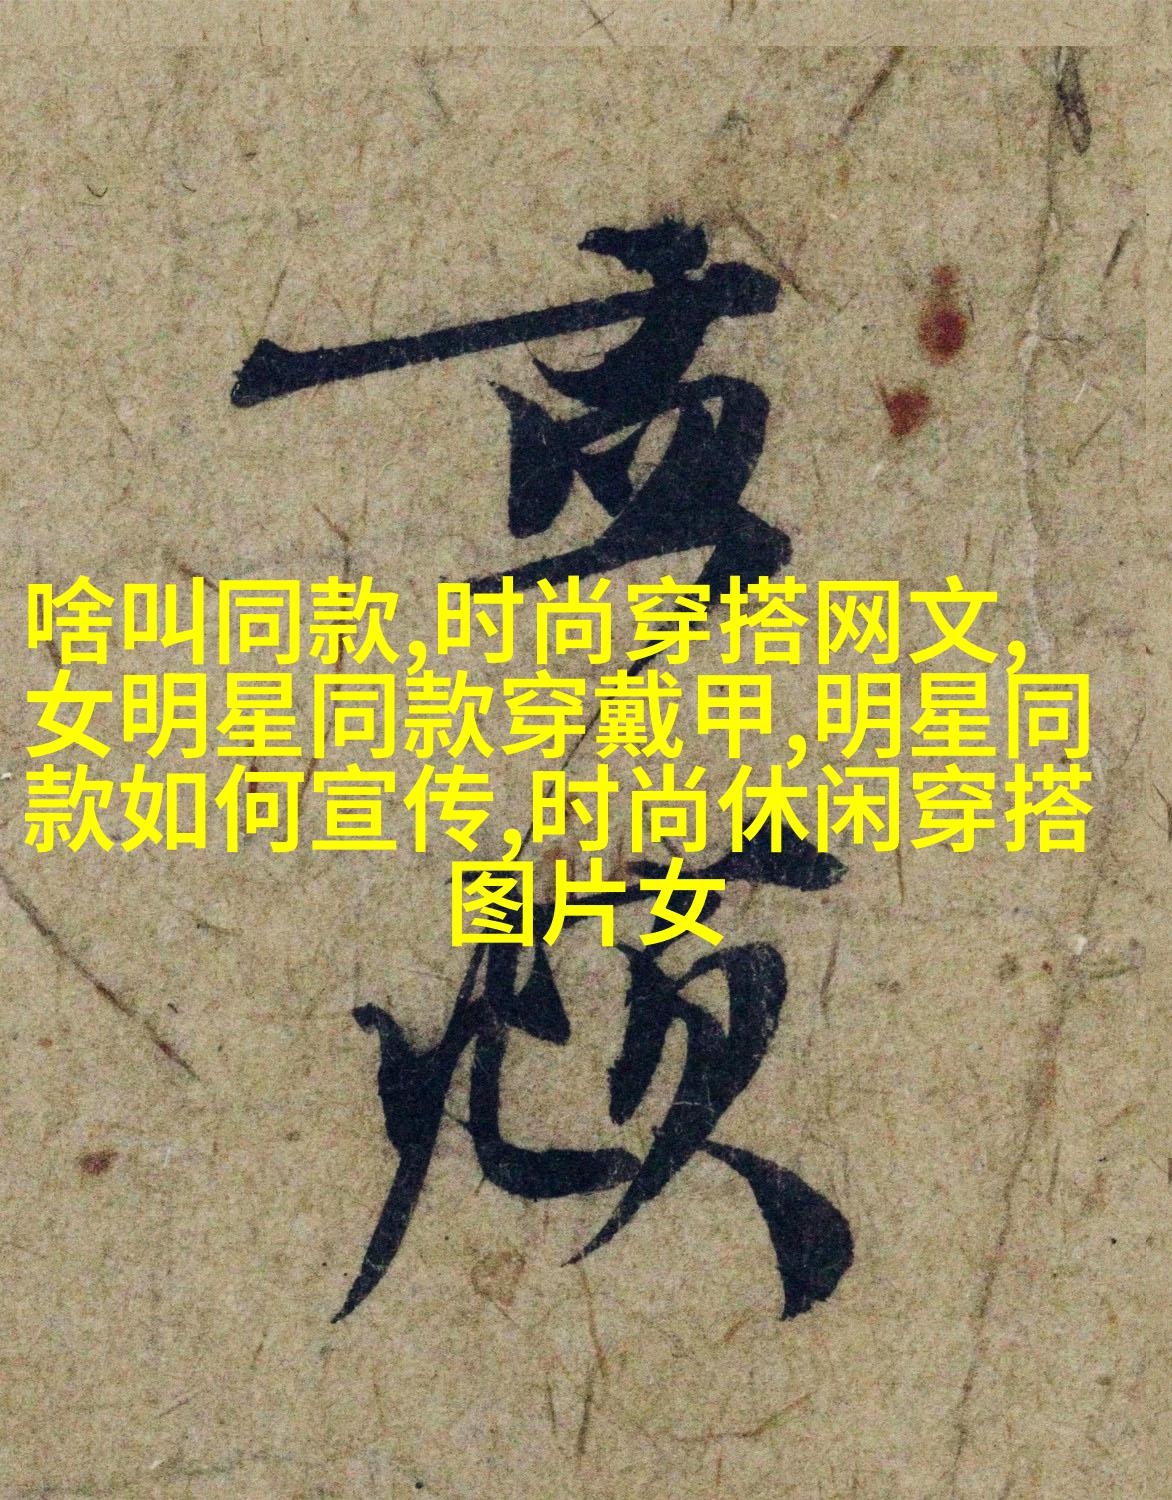 啥叫同款,时尚穿搭网文,
女明星同款穿戴甲,明星同
款如何宣传,时尚休闲穿搭
图片女